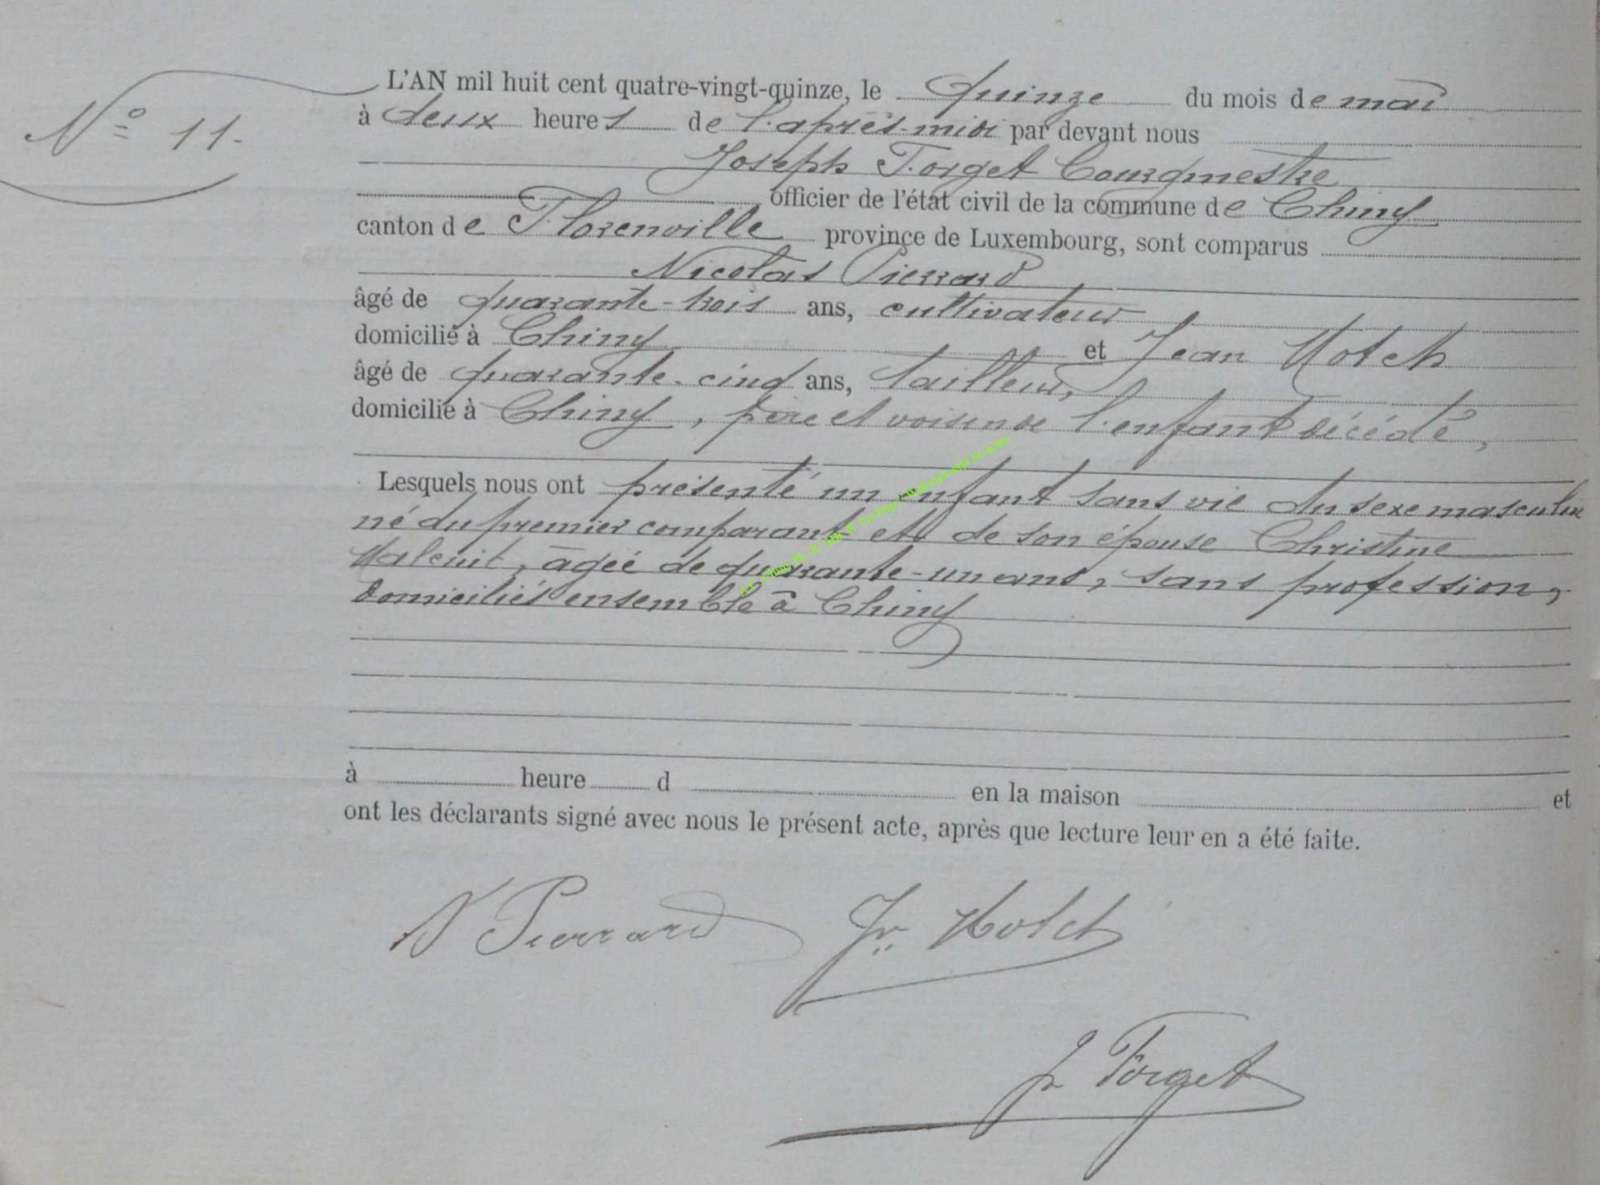 N° 11.
L'AN mil huit cent quatre-vingt-quinze, le quinze du mois de mai
à deux heures de l'après-midi par devant nous
Joseph Forget Bourgmestre
officier de l'état civil de la commune de Chiny
canton de Florenville province de Luxembourg, sont comparus
Nicolas Pierrard
âgé de quarante-trois ans, cultivateur
domicilié à Chiny et Jean Hotch
âgé de quarante-cinq ans, tailleur,
domicilié à Chiny, père et voisin de l'enfant décédé,
Lesquels nous ont présenté un enfant sans vie du sexe masculin
né du premier comparant et de son épouse Christine
âgée de quarante-un ans, sans profession,
domiciliés ensemble à Chiny
à heure d en la maison et
ont les déclarants signé avec nous le présent acte, après que lecture leur en a été faite.
N Pierrard Jn Hotch
J Forget